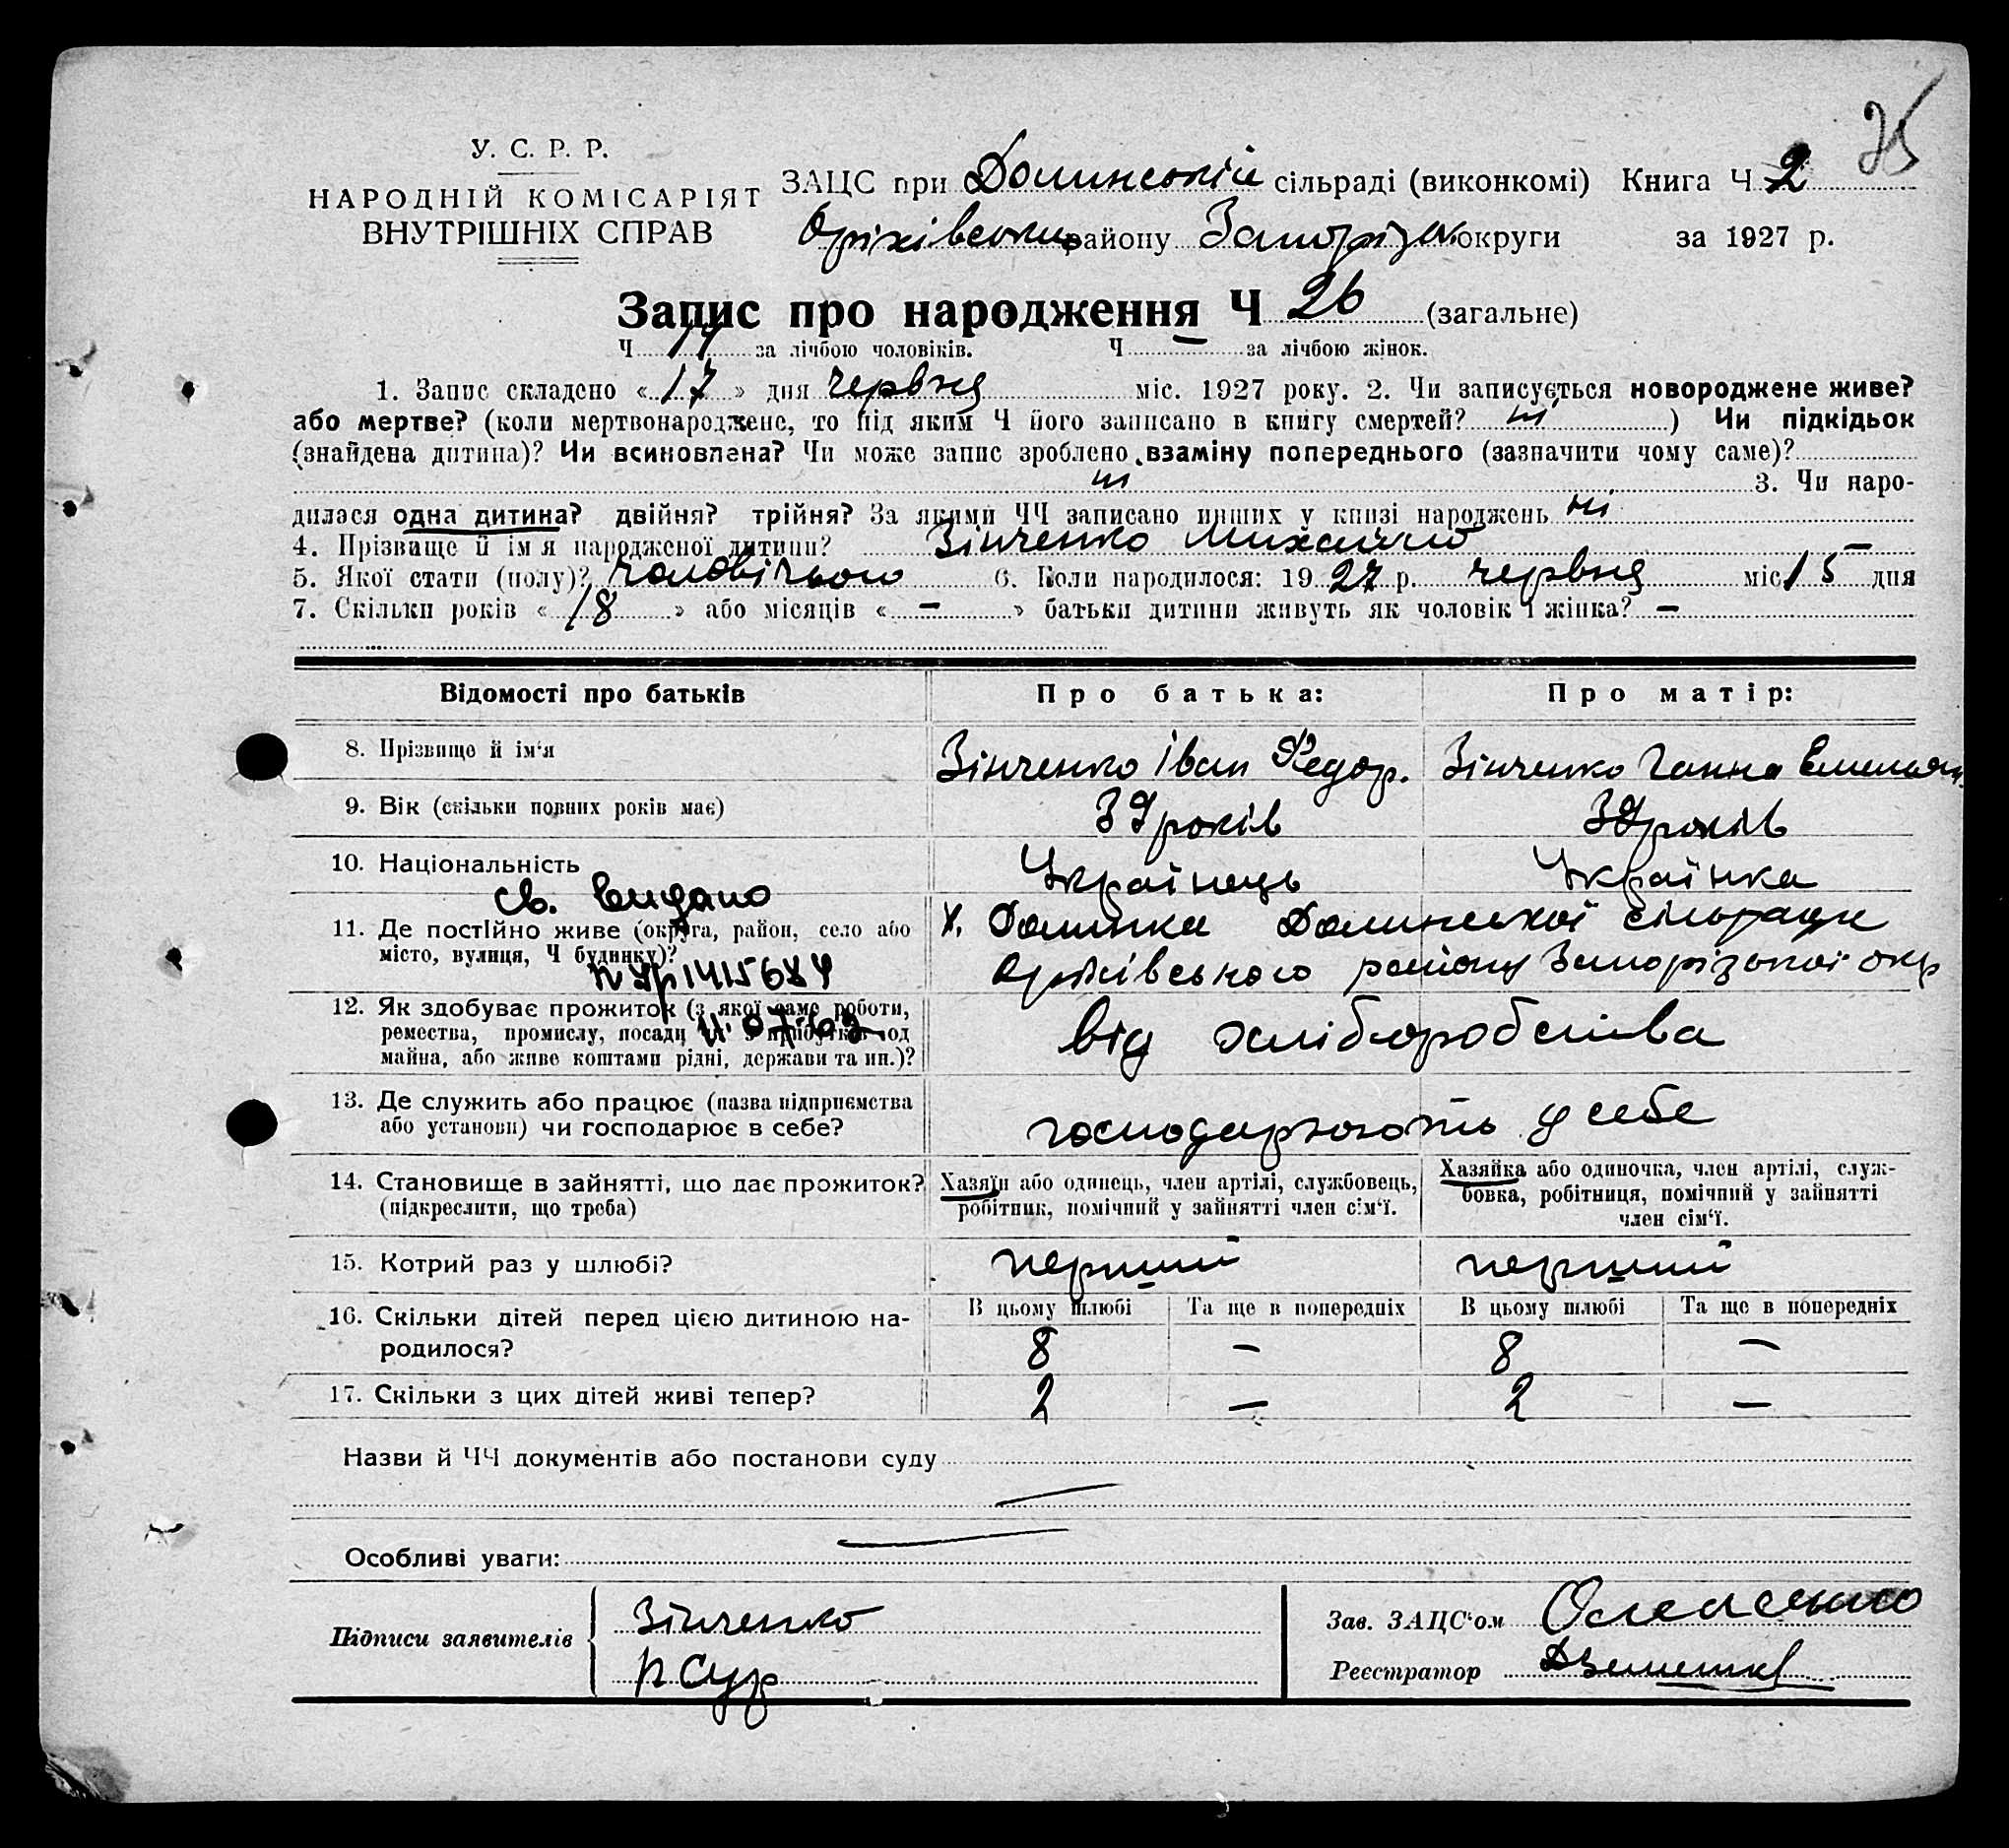 25
У. С. Р. Р.
НАРОДНІЙ КОМІСАРІЯТ
ВНУТРІШНІХ СПРАВ
ЗАЦС при Долинській сільраді (виконкомі) Книга Ч 2
Оріхівськ. району Запоріз. округи за 1927 р.
Запис про народження Ч 26 (загальне)
Ч 14 за лічбою чоловіків. Ч — за лічбою жінок.
1. Запис складено «17» дня червня міс. 1927 року. 2. Чи записується новороджене живе?
або мертве? (коли мертвонароджене, то під яким Ч його записано в книгу смертей? ні ) Чи підкідьок
(знайдена дитина)? Чи всиновлена? Чи може запис зроблено взаміну попереднього (зазначити чому саме)?
ні 3. Чи наро-
дилася одна дитина? двійня? трійня? За якими ЧЧ записано инших у книзі народжень ні
4. Прізвище й ім'я народженої дитини? Зінченко Михайло —
5. Якої стати (полу)? чоловічього 6. Коли народилося: 1927 р. червня міс 15 дня
7. Скільки років «18» або місяців «—» батьки дитини живуть як чоловік і жінка? —
Відомості про батьків Про батька: Про матір:
8. Прізвище й ім'я Зінченко Іван Федор. Зінченко Ганна Емельян.
9. Вік (скільки повних років має) 39 років 39 років
10. Національність Українець Українка
св. видано
11. Де постійно живе (округа, район, село або Х. Долинка Долинської сільради
місто, вулиця, Ч будинку)? Оріхівського району Запорізької окр
12. Як здобуває прожиток (з якої саме роботи,
ремества, промислу, посади чи з прибутків од
майна, або живе коштами рідні, держави та ин.)? від хліборобства
13. Де служить або працює (назва підприємства
або установи) чи господарює в себе? господарюють у себе
14. Становище в зайнятті, що дає прожиток? Хазяїн або одинець, член артілі, службовець, Хазяйка або одиночка, член артілі, служ-
(підкреслити, що треба) робітник, помічний у зайнятті член сім'ї. бовка, робітниця, помічний у зайнятті
член сім'ї.
15. Котрий раз у шлюбі? перший перший
16. Скільки дітей перед цією дитиною на- В цьому шлюбі Та ще в попередніх В цьому шлюбі Та ще в попередніх
родилося? 8 — 8 —
17. Скільки з цих дітей живі тепер? 2 — 2 —
Назви й ЧЧ документів або постанови суду
—
Особливі уваги: —
Підписи заявителів Зінченко
Зав. ЗАЦС'ом
Реєстратор